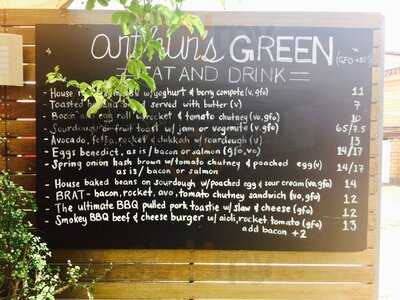 arthur's GREEN (GFO +$1)
EAT AND DRINK
- House w/yoghurt & berry compote (v, gfo) 11
- Toasted served with butter (v) 7
- Bacon egg roll w/rocket & tomato chutney (vo, gfo) 10
- Sourdough or fruit toast w/ jam or vegemite (v, gfo) 6.5/7.5
- Avocado, fetta, rocket & dukkah w/sourdough (v) 13
- Eggs benedict, as is/ bacon or salmon (gfo, vo) 14/17
- Spring onion hash brown w/tomato chutney & poached egg (v) 14/17
as is/ bacon or salmon
- House baked beans on sourdough w/poached egg & sour cream (va, gfo) 14
- BRAT - bacon, rocket, avo, tomato chutney sandwich (vo, gfo) 12
- The ultimate BBQ pulled pork toastie w/slaw & cheese (gfo) 12
- Smokey BBQ beef & cheese burger w/ aioli, rocket tomato (gfo) 13
add bacon +2